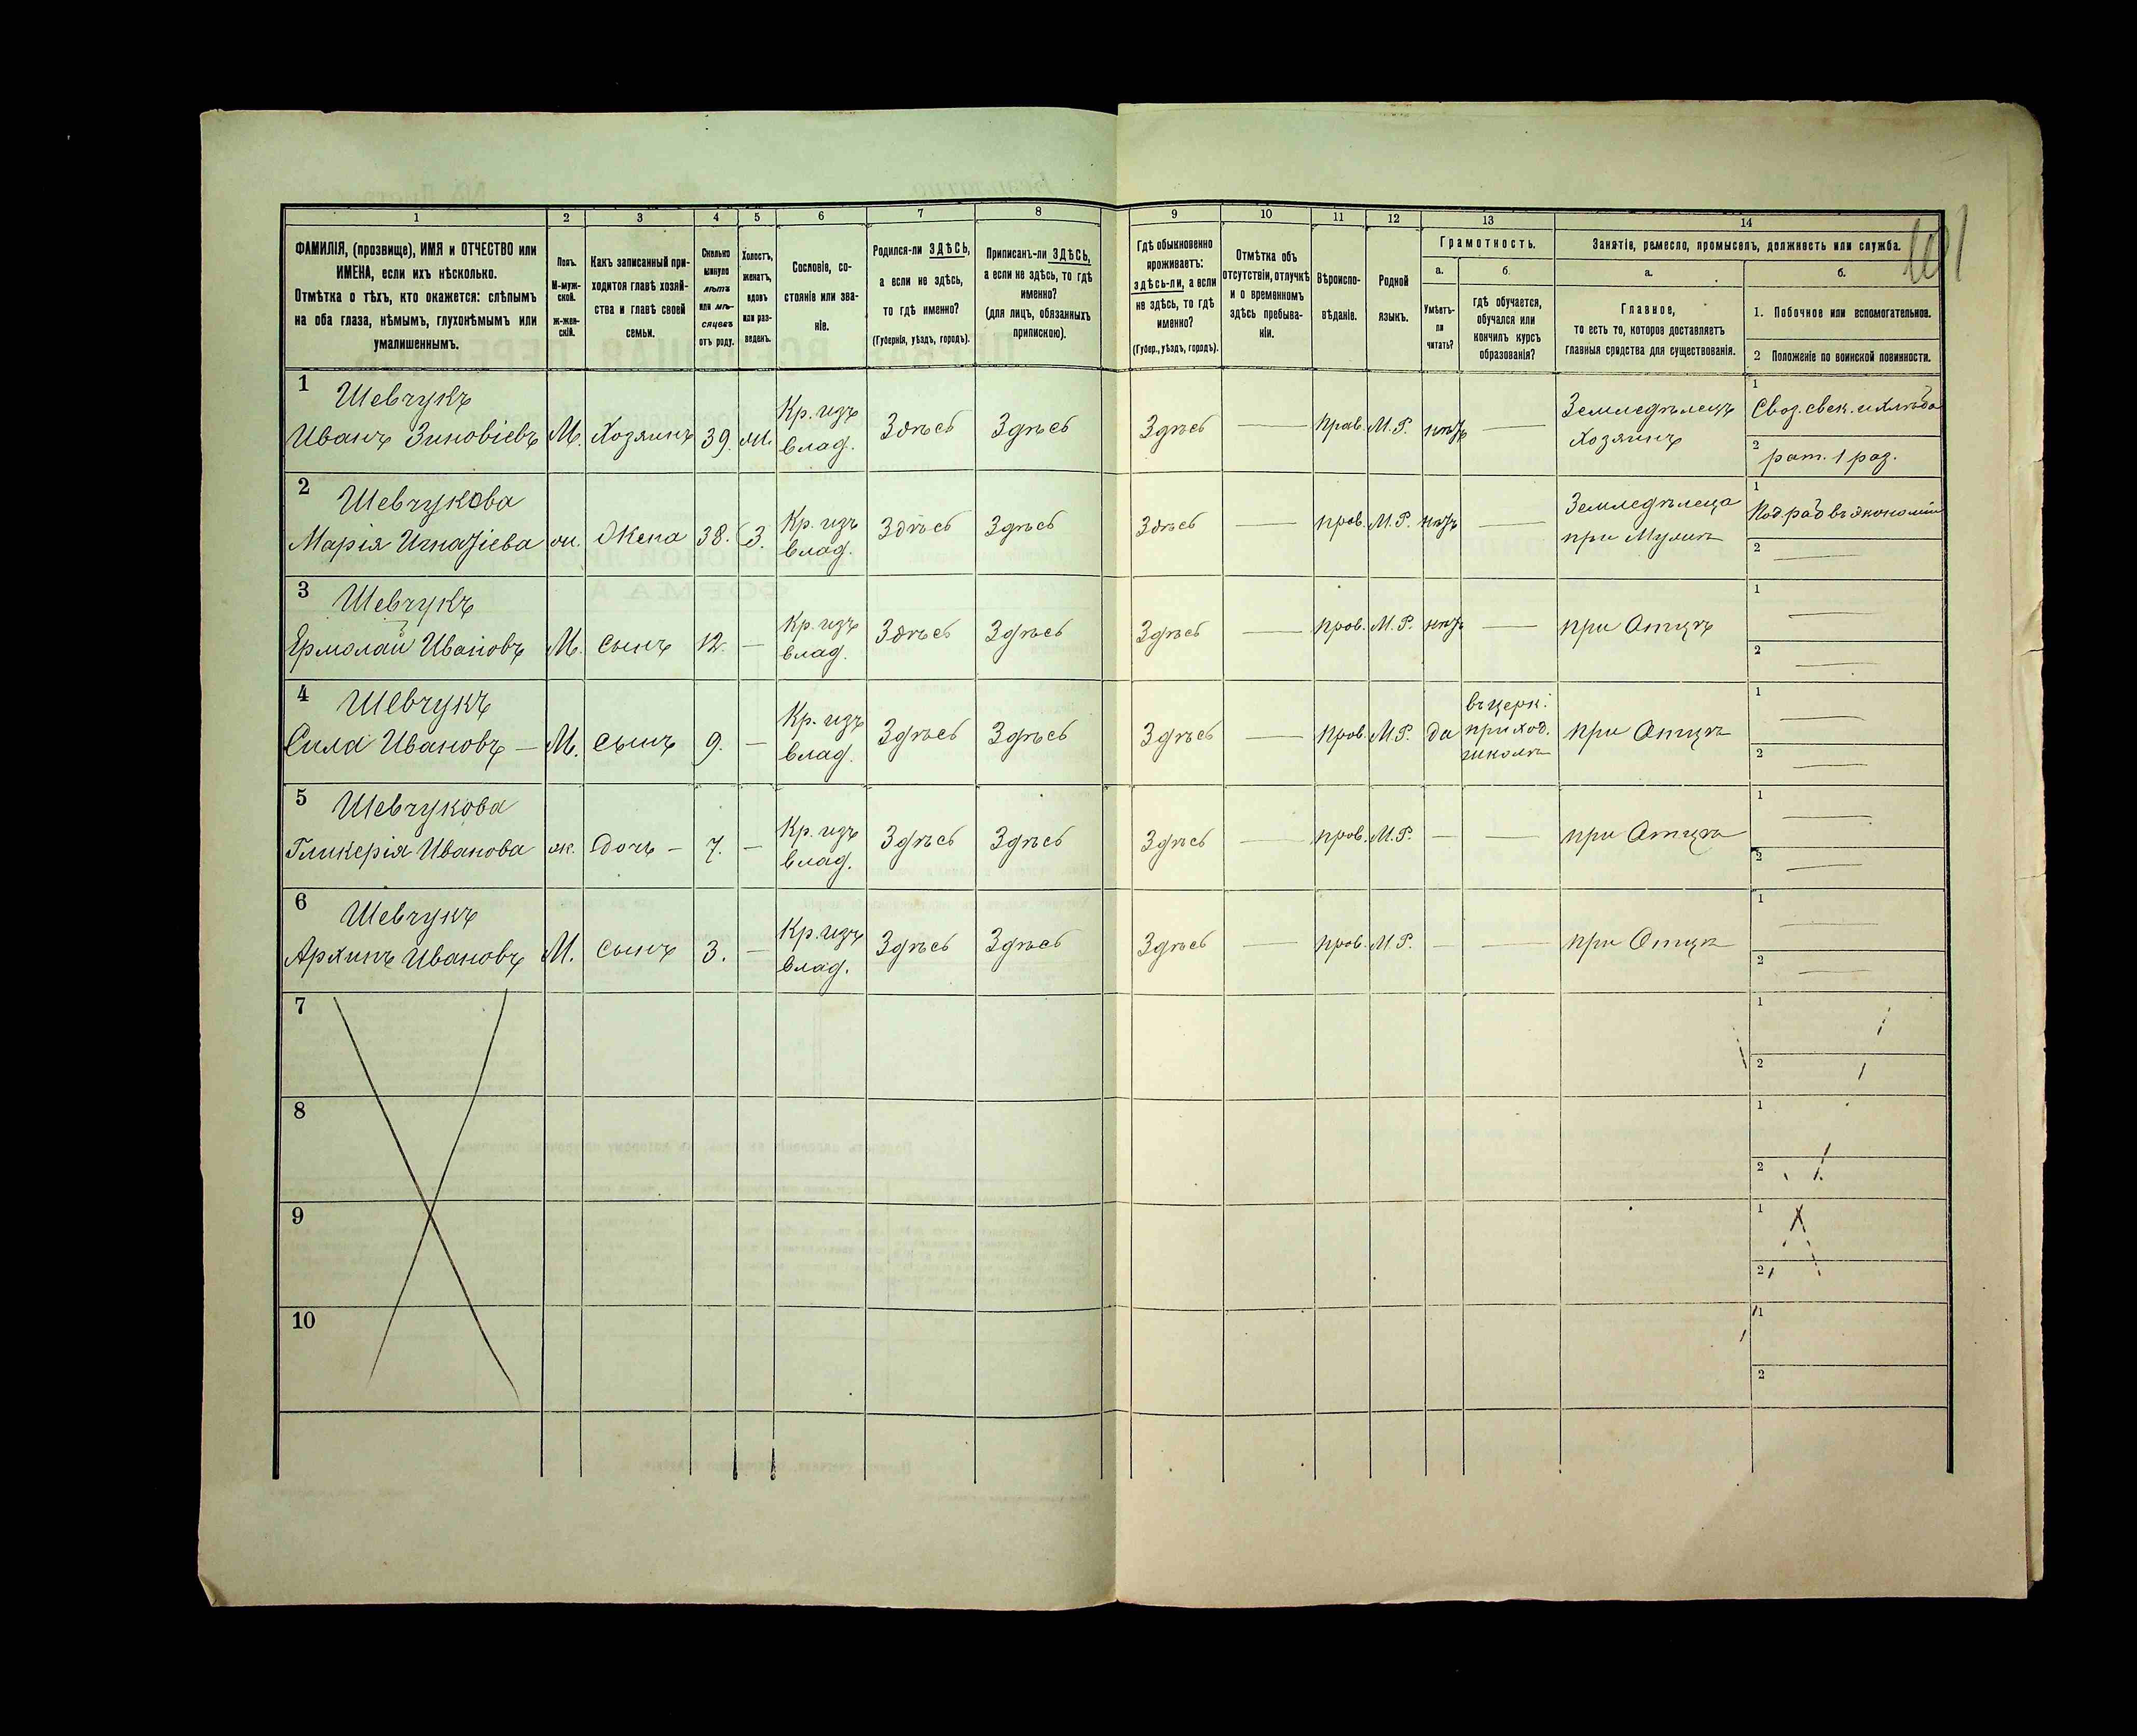 1 2 3 4 5 6 7 8 9 10 11 12 13 14
ФАМИЛІЯ, (прозвище), ИМЯ и ОТЧЕСТВО или
ИМЕНА, если ихъ нѣсколько.
Отмѣтка о тѣхъ, кто окажется: слѣпымъ
на оба глаза, нѣмымъ, глухонѣмымъ или
умалишеннымъ.
Полъ.
М-муж-
ской.
ж-жен-
скій.
Какъ записанный при-
ходится главѣ хозяй-
ства и главѣ своей
семьи.
Сколько
минуло
лѣтъ
или мѣ-
сяцевъ
отъ роду.
Холостъ,
женатъ,
вдовъ
или раз-
веденъ.
Сословіе, со-
стояніе или зва-
ніе.
Родился-ли ЗДѢСЬ,
а если не здѣсь,
то гдѣ именно?
(Губернія, уѣздъ, городъ).
Приписанъ-ли ЗДѢСЬ,
а если не здѣсь, то гдѣ
именно?
(для лицъ, обязанныхъ
припискою).
Гдѣ обыкновенно
проживаетъ:
здѣсь-ли, а если
не здѣсь, то гдѣ
именно?
(Губер., уѣздъ, городъ).
Отмѣтка объ
отсутствіи, отлучкѣ
и о временномъ
здѣсь пребыва-
ніи.
Вѣроиспо-
вѣданіе.
Родной
языкъ.
Грамотность.
а.
Умѣетъ-
ли
читать?
б.
гдѣ обучается,
обучался или
кончилъ курсъ
образованія?
Занятія, ремесло, промыселъ, должность или служба.
а.
Главное,
то есть то, которое доставляетъ
главныя средства для существованія.
б.
1. Побочное или вспомогательное.
2 Положеніе по воинской повинности.
1 Шевчукъ
Иванъ Зиновіевъ М. Хозяинъ 39. ж. Кр. изъ влад. Здѣсь Здѣсь Здѣсь — Прав. М.Р. нѣтъ — Земледѣлецъ
Хозяинъ
1 Своз. свек. и хлѣба
2 рат. 1 раз.
2 Шевчукова
Марія Игнатіева ж. Жена 38. З. Кр. изъ влад. Здѣсь Здѣсь Здѣсь — прав. М.Р. нѣтъ — Земледѣлица
при Мужѣ
1 Под. раб въ экономіи
2 —
3 Шевчукъ
Ермолай Ивановъ М. сынъ 12. — Кр. изъ влад. Здѣсь Здѣсь Здѣсь — прав. М.Р. нѣтъ — при Отцѣ
1 —
2 —
4 Шевчукъ
Сила Ивановъ — М. сынъ 9. — Кр. изъ влад. Здѣсь Здѣсь Здѣсь — прав. М.Р. да въ церк. приход. школѣ при Отцѣ
1 —
2 —
5 Шевчукова
Гликерія Иванова ж. дочь — 7. — Кр. изъ влад. Здѣсь Здѣсь Здѣсь — прав. М.Р. — — при Отцѣ
1 —
2 —
6 Шевчукъ
Архипъ Ивановъ М. сынъ 3. — Кр. изъ влад. Здѣсь Здѣсь Здѣсь — прав. М.Р. — — при Отцѣ
1 —
2 —
7
1
2
8
1
2
9
1
2
10
1
2